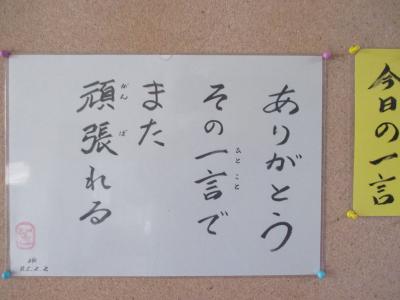 今日の一言
ありがとう
その一言で
ひとこと
また
頑張れる
がんば